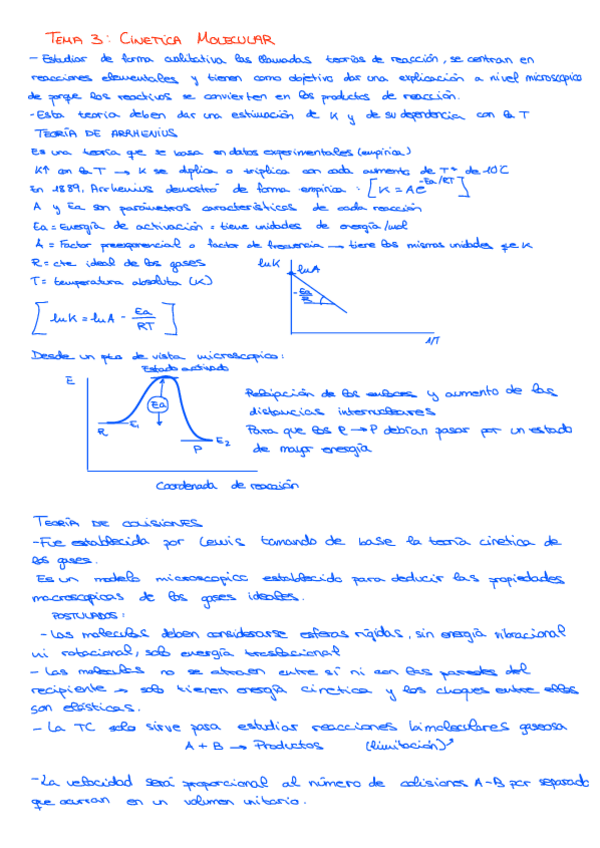 TEMA 3: CINETICA MOLECULAR
- Estudiar de forma cualitativa las llamadas teorías de reacción, se centran en
reacciones elementales y tienen como objetivo dar una explicación a nivel microscopico
de porqe los reactivos se convierten en los productos de reacción.
- Esta teoría deben dar una estimación de K y de su dependencia con la T
TEORÍA DE ARRHENIUS
Es una teoría que se basa en datos experimentales (empírica)
K↑ con la T → K se duplica o triplica con cada aumento de Tª de 10°C
En 1889, Arrhenius demostró de forma empírica: [K = Ae^-Ea/RT]
A y Ea son parámetros característicos de cada reacción
Ea = Energía de activación = tiene unidades de energía/mol
A = Factor preexponencial o factor de frecuencia → tiene las mismas unidades qe K
R = cte ideal de los gases
T = temperatura absoluta (K)
lnK
lnA
-Ea/R
1/T
[lnK = lnA - Ea/RT]
Desde un pto de vista microscopico:
Estado activado
E
Ea
R
E1
P
E2
Coordenada de reacción
de los enlaces y aumento de las
distancias internucleares
Para que los R → P debían pasar por un estado
de mayor energía
TEORÍA DE COLISIONES
- Fue establecida por Lewis tomando de base la teoría cinetica de
los gases.
Es un modelo microscopico establecido para deducir las propiedades
macroscopicas de los gases ideales.
POSTULADOS:
- Las moleculas deben considerarse esferas rígidas, sin energía vibracional
ni rotacional, solo energía traslacional
- Las moleculas no se atraen entre sí ni con las paredes del
recipiente → solo tienen energía cinetica y los choques entre ellas
son elásticas.
- La TC solo sirve para estudiar reacciones bimoleculares gaseosa
A + B → Productos (limitación)
- La velocidad será proporcional al número de colisiones A-B por separado
que ocurran en un volumen unitario.